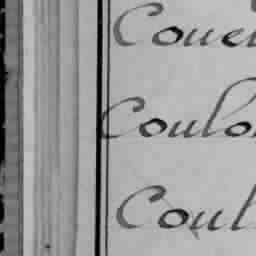 Coue
Coulo
Coul